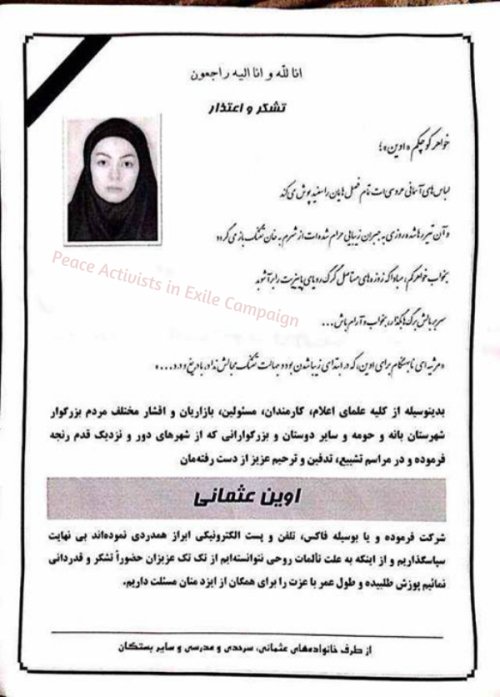 انا لله و انا الیه راجعون
تشکر و اعتذار
خواهر کوچکم «اوین»؛
لباس‌های آسمانی عروسی‌ات تمام فصل‌هایمان را سفیدپوش می‌کند
و آن تیر رها شده روزی به جبران زیبایی حرام شده‌ات از شرم به خان تفنگ باز می‌گردد
بخواب خواهرکم، مبادا که زوزه‌های گرگ رویای پاییزیت را برآشوبد
سر بر بالش برگ‌ها بگذار، بخواب و آرام باش...
«مرثیه‌ای نابهنگام برای اوین، که در ابتدای زیبا شدن بود و جهالت تفنگ مجالش نداد، با دریغ و درد...»
Peace Activists in Exile Campaign
بدینوسیله از کلیه علمای اعلام، کارمندان، مسئولین، بازاریان و اقشار مختلف مردم بزرگوار
شهرستان بانه و حومه و سایر دوستان و بزرگوارانی که از شهرهای دور و نزدیک قدم رنجه
فرموده و در مراسم تشییع، تدفین و ترحیم عزیز از دست رفته‌مان
اوین عثمانی
شرکت فرموده و یا بوسیله فاکس، تلفن و پست الکترونیکی ابراز همدردی نموده‌اند بی نهایت
سپاسگذاریم و از اینکه به علت تألمات روحی نتوانسته‌ایم از تک تک عزیزان حضوراً تشکر و قدردانی
نمائیم پوزش طلبیده و طول عمر با عزت را برای همگان از ایزد منان مسئلت داریم.
از طرف خانواده‌های عثمانی، سرحدی و مدرسی و سایر بستگان